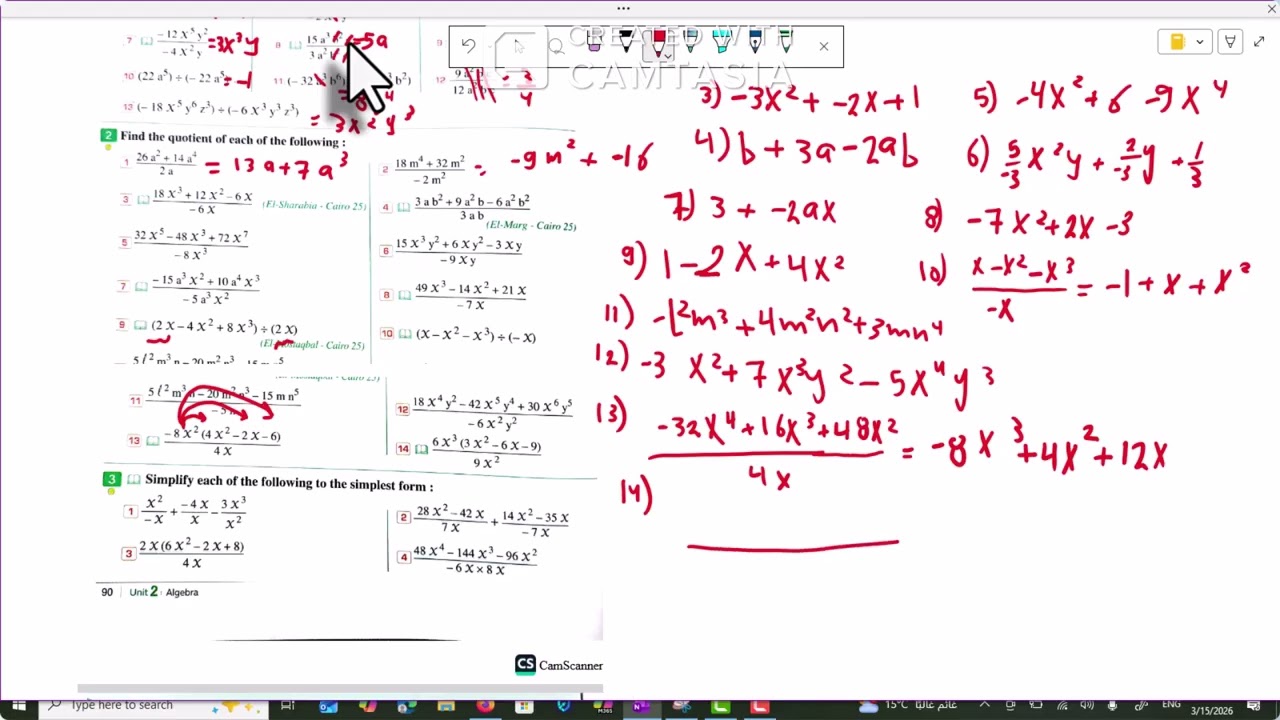 CREATED WITH
CAMTASIA
7 -12 X⁵ y² / -4 X² y = 3X³y
8 15 a³ / 3 a² -5a
9
10 (22 a⁵) ÷ (-22 a⁵) = -1
11 (-32 b⁶) b²)
12 3/4
13 (-18 X⁵ y⁶ z³) ÷ (-6 X³ y³ z³)
= 3X² y³
2 Find the quotient of each of the following :
1 26 a² + 14 a⁴ / 2 a = 13a+7a³
2 18 m⁴ + 32 m² / -2 m² = -9m² + -16
3 18 X³ + 12 X² - 6 X / -6 X (El-Sharabia - Cairo 25)
4 3 a b² + 9 a² b - 6 a² b² / 3 a b
(El-Marg - Cairo 25)
5 32 X⁵ - 48 X³ + 72 X⁷ / -8 X³
6 15 X³ y² + 6 X y² - 3 X y / -9 X y
7 -15 a³ X² + 10 a⁴ X³ / -5 a³ X²
8 49 X³ - 14 X² + 21 X / -7 X
9 (2 X - 4 X² + 8 X³) ÷ (2 X)
- Cairo 25)
10 (X - X² - X³) ÷ (-X)
11 5 l² m³ n - 20 m² n³ - 15 m n⁵
12 18 X⁴ y² - 42 X⁵ y⁴ + 30 X⁶ y⁵ / -6 X² y²
13 -8 X² (4 X² - 2 X - 6) / 4 X
14 6 X³ (3 X² - 6 X - 9) / 9 X²
3 Simplify each of the following to the simplest form :
1 X² / -X + -4 X / X - 3 X³ / X²
2 28 X² - 42 X / 7 X + 14 X² - 35 X / -7 X
3 2 X (6 X² - 2 X + 8) / 4 X
4 48 X⁴ - 144 X³ - 96 X² / -6 X × 8 X
90 Unit 2 : Algebra
CS CamScanner
3) -3X² + -2X + 1
5) -4X² + 6 -9X⁴
4) b + 3a - 2ab
6) 5/-3 X²y + 2/-3 y + 1/3
7) 3 + -2aX
8) -7X² + 2X - 3
9) 1 - 2X + 4X²
10) X - X² - X³ / -X = -1 + X + X²
11) -l²m³ + 4m²n² + 3mn⁴
12) -3 X² + 7X³y² - 5X⁴y³
13) -32X⁴ + 16X³ + 48X² / 4X = -8X³ + 4X² + 12X
14)
Type here to search
15°C
غائم غالبًا
ENG
3/15/2026